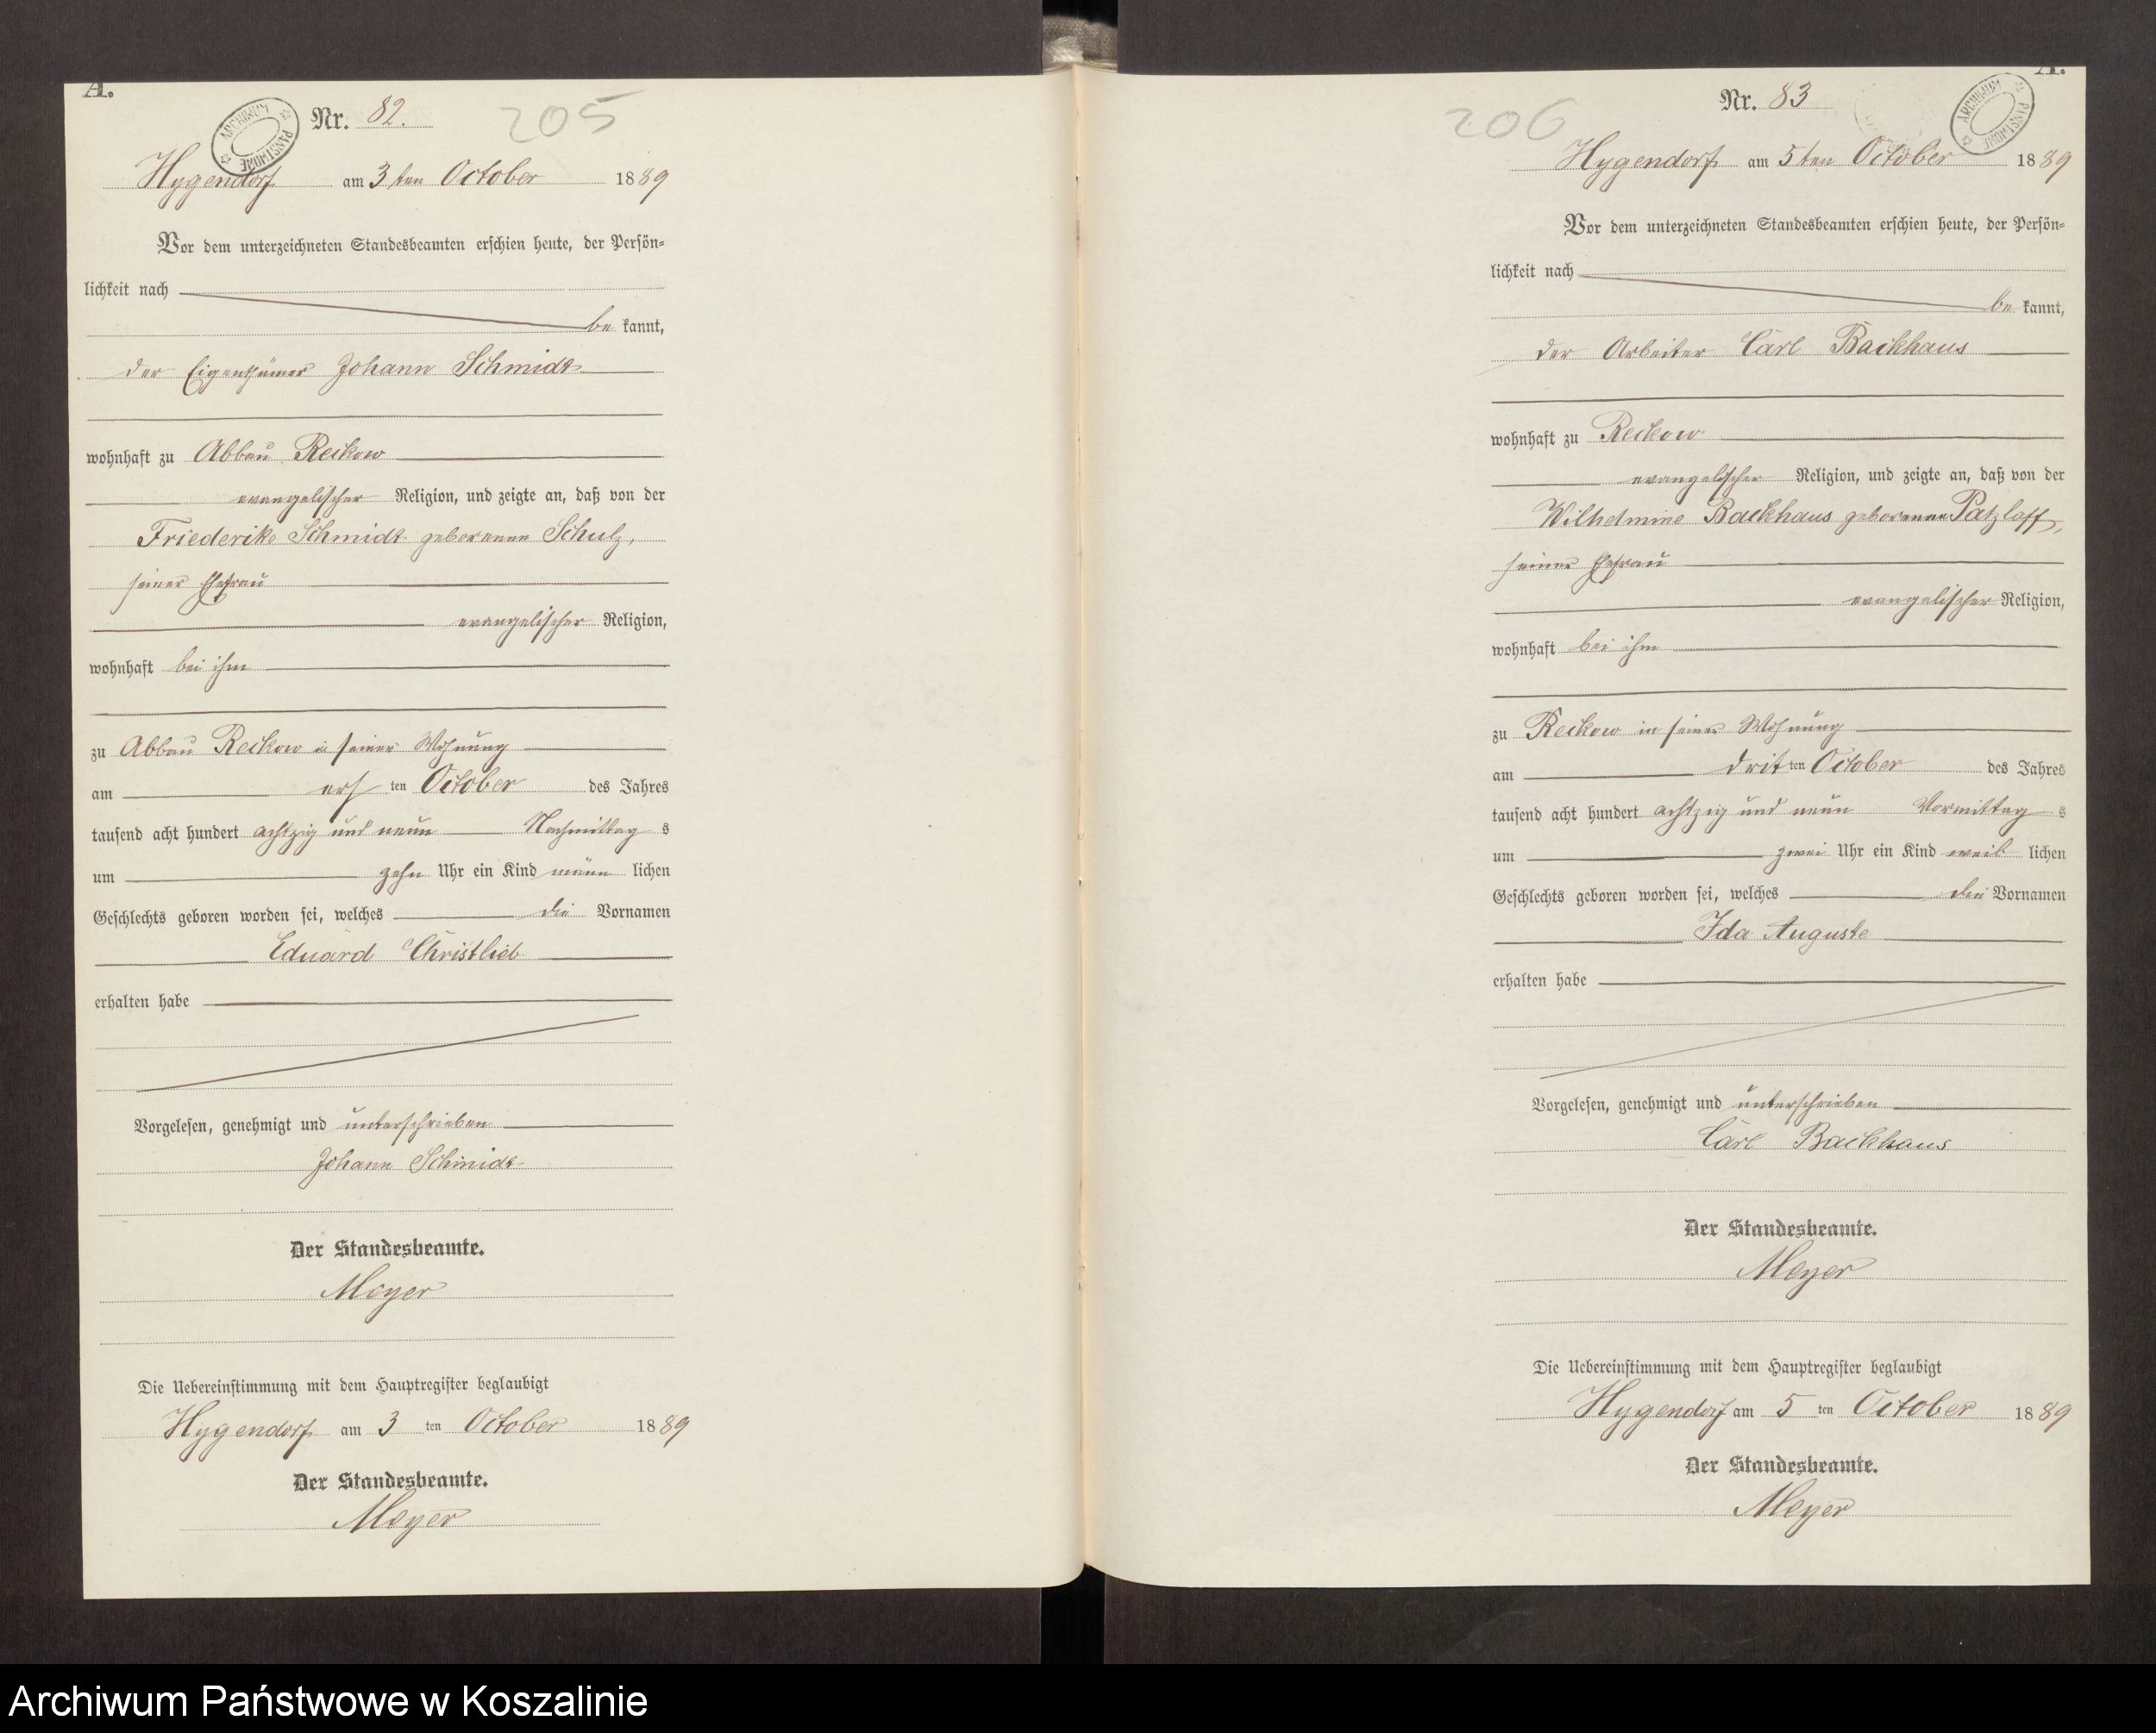 A.
Nr. 82.
205
ARCHIWUM PAŃSTWOWE
Hygendorf am 3 ten October 1889
Vor dem unterzeichneten Standesbeamten erschien heute, der Persön-
lichkeit nach
be kannt,
der Eigenthümer Johann Schmidt
wohnhaft zu Abbau Reckow
evangelischer Religion, und zeigte an, daß von der
Friederike Schmidt geborenen Schulz,
seiner Ehefrau
evangelischer Religion,
wohnhaft bei ihm
zu Abbau Reckow in seiner Wohnung
am ersten October des Jahres
tausend acht hundert achtzig und neun Nachmittag s
um zehn Uhr ein Kind männ lichen
Geschlechts geboren worden sei, welches die Vornamen
Eduard Christlieb
erhalten habe
Vorgelesen, genehmigt und unterschrieben
Johann Schmidt
Der Standesbeamte.
Meyer
Die Uebereinstimmung mit dem Hauptregister beglaubigt
Hygendorf am 3 ten October 1889
Der Standesbeamte.
Meyer
A.
Nr. 83
206
ARCHIWUM PAŃSTWOWE
Hygendorf am 5 ten October 1889
Vor dem unterzeichneten Standesbeamten erschien heute, der Persön-
lichkeit nach
be kannt,
der Arbeiter Carl Backhaus
wohnhaft zu Reckow
evangelischer Religion, und zeigte an, daß von der
Wilhelmine Backhaus geborenen Patzlaff,
seiner Ehefrau
evangelischer Religion,
wohnhaft bei ihm
zu Reckow in seiner Wohnung
am dritten October des Jahres
tausend acht hundert achtzig und neun Vormittag s
um zwei Uhr ein Kind weib lichen
Geschlechts geboren worden sei, welches die Vornamen
Ida Auguste
erhalten habe
Vorgelesen, genehmigt und unterschrieben
Carl Backhaus
Der Standesbeamte.
Meyer
Die Uebereinstimmung mit dem Hauptregister beglaubigt
Hygendorf am 5 ten October 1889
Der Standesbeamte.
Meyer
Archiwum Państwowe w Koszalinie